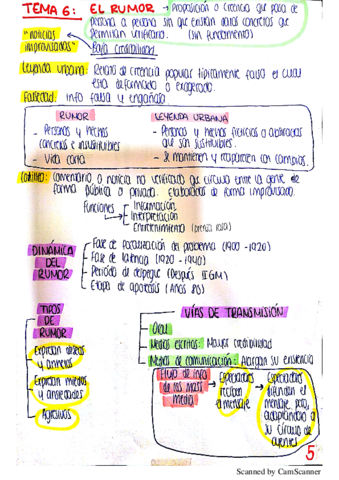 TEMA 6: EL RUMOR → Proposición o creencia que pasa de
persona a persona sin que existan datos concretos que
permitan verificarlo. (sin fundamento)
"noticias
improvisadas"
Baja credibilidad
Leyenda urbana: Relato de creencia popular típicamente falso el cual
esta deformado o exagerado.
Falsedad: Info falsa y engañosa
RUMOR
- Personas y hechos
concretos e insustituibles
- Vida corta
LEYENDA URBANA
- Personas y hechos ficticios o abstractos
que son sustituibles.
- Se mantienen y reaparecen con cambios.
comentario o noticia no verificada que circula entre la gente de
forma pública o privada. Elaborados de forma improvisada.
Funciones
Información
Interpretación
Entretenimiento (prensa rosa)
DINÁMICA
DEL
RUMOR
- Fase de focalización del problema (1900-1920)
- Fase de latencia (1920-1940)
- Periodo de despegue (Después II GM)
- Etapa de apoteosis (Años 80)
TIPOS
DE
RUMOR
Expresan deseos
y anhelos
Expresan miedos
y ansiedades
Agresivos
VÍAS DE TRANSMISIÓN
Oral
Medios escritos: Mayor credibilidad
Medios de comunicación: Alargan su existencia
Flujo de info
de los mass
media
→ Espectadores
reciben
el mensaje
→ Espectadores
difunden el
mensaje pero
adaptándolo a
su círculo de
oyentes
5
Scanned by CamScanner